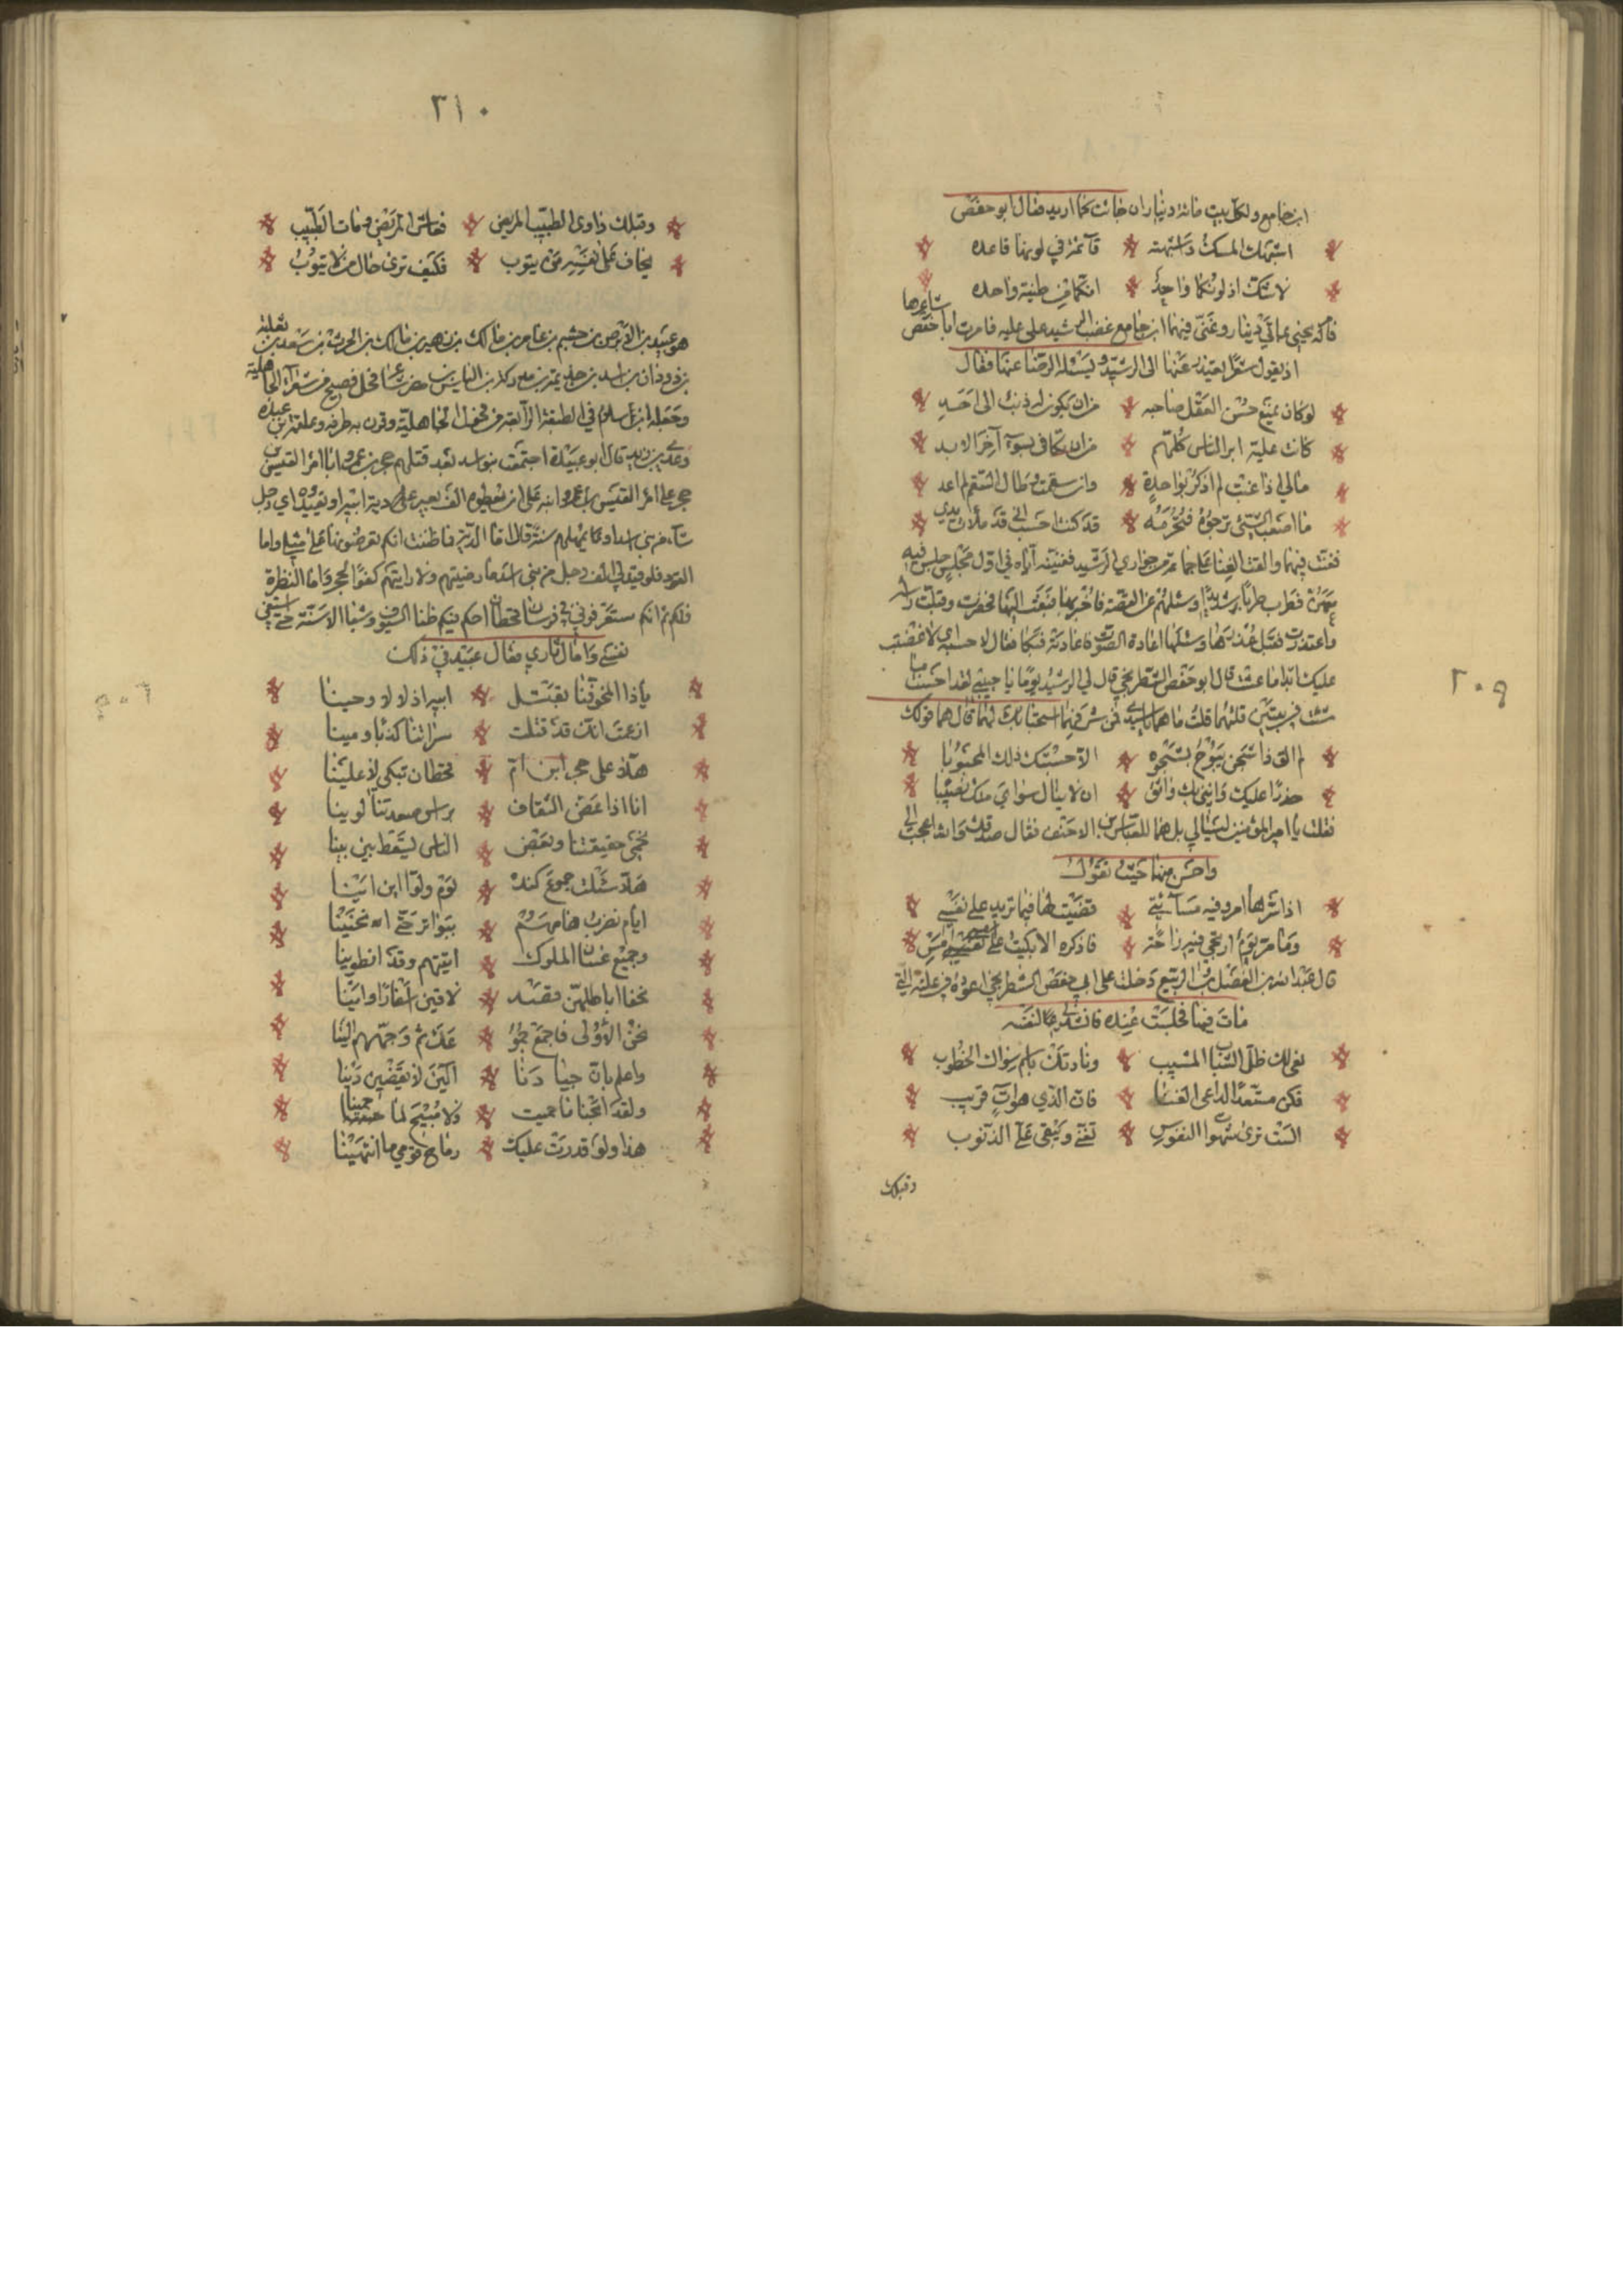 ابن جامع ولكل بيت مائة دينار ان جائت كما اريد فقال ابو حفص
اشبهك المسك واشبهته قائمة في لونها قاعده
لا شك اذ لونكما واحد انكما من طينة واحده
فامر له يحيى بمائتي دينار وغنى فيهما ابن جامع غضب الرشيد على علية فامرت ابا حفص شاعرها
ان يقول شعرا يعتذر عنها الى الرشيد ويسئله الرضا عنها فقال
لو كان يمنع حسن العقل صاحبه من ان يكون له ذنب الى احد
كانت علية ابر الناس كلهم من ان تكافى بسوء آخر الابد
مالي اذا غبت لم اذكر بواحدة وان سقمت وطال السقم لم اعد
ما اعجب الشيئ نرجوه فنحرمه قد كنت احسب اني قد ملأت يدي
فغنت فيهما والقت الغنا على جماعة من جواري الرشيد فغنينه اياه في اول مجلس جلس فيه
معهن فطرب طربا شديدا وسئلهن عن القصة فاخبرنه بها فبعث اليها فحضرت وقبلت راسه
واعتذرت فقبل عذرها وسئلها اعادة الصوت فاعادته فبكا فقال لا جرم اني لا غضبت
عليك ابدا ما عشت قال ابو حفص الشطرنجي قال لي الرشيد يوما يا حبيبي لقد احسنت ما
شئت في بيتين قلتهما قلت ما هما يا سيدي فمن شرفهما استحسانك لهما قال هما قولك
لم الق ذا شجن يبوح بشجوه الا حسبتك ذلك المحبوبا
حذرا عليك وانني بك واثق ان لا ينال سواي منك نصيبا
فقلت يا امير المؤمنين ليسا لي بل هما للعباس بن الاحنف فقال صدقك والله اعجب الي
واحسن منهما حيث تقول
اذا سرها امر وفيه مسآئتي قضيت لها فيما تريد على نفسي
وما مر يوم ارتجي فيه راحة فاذكره الا بكيت على امسي
قال عبد الله بن الفضل بن الربيع دخلت على ابي حفص الشطرنجي اعوده في علته التي
مات فيها فجلست عنده فانشدني لنفسه
نعى لك ظل الشباب المشيب ونادتك باسم سواك الخطوب
فكن مستعدا لداعي الفنا فان الذي هو آت قريب
الست ترى شهوات النفوس تفنى وتبقى على الذنوب
وقبلك
٢٠٩
٣١٠
وقبلك داوى الطبيب المريض فعاش المريض ومات الطبيب
يخاف على نفسه من يتوب فكيف ترى حال من لا يتوب
هو عبيد بن الابرص بن جشم بن عامر بن مالك بن زهير بن مالك بن الحرث بن سعد بن ثعلبة
بن دودان بن اسد بن خزيمة بن مدركة بن الياس بن مضر شاعر فحل فصيح من شعرآء الجاهلية
وجعله ابن سلام في الطبقة الرابعة من فحول الجاهلية وقرن به طرفه وعلقمة بن عبده
وعدي بن زيد قال ابو عبيدة اجتمعت بنو اسد بعد قتلهم حجر بن عمرو ابا امرؤ القيس بن
حجر على امرؤ القيس بن حجر ابنه على ان يعطوه الف بعير على دية ابيه او يقيدوه اي رجل
شآء من بني اسد او يمهلهم سنة قال اما الدية فما ظننت انكم تعرضونها على مثلي واما
القود فلو قيد الي الف رجل من بني اسد ما رضيتهم ولا رايتهم كفوا لحجر واما النظرة
فلكم ثم انكم ستعرفوني في فرسان قحطان احكم فيكم ظبا السيوف وشبا الاسنة حتى اشفي
نفسي وانال ثاري فقال عبيد في ذلك
ياذا المخوفنا بقتـل ابيه اذلالا وحينا
ازعمت انك قد قتلت سراتنا كذبا ومينا
هلا على حجر ابن ام قحطان تبكي لا علينا
انا اذا عض الثقاف براس صعدتنا لوينا
نحمي حقيقتنا وبعض الناس يسقط بين بينا
هلا سئلت جموع كنده يوم ولوا اين اينا
ايام نضرب هامهم ببواتر حتى انحنينا
وجميع غسان الملوك اتيتهم وقد انطوينا
نحن الأولى فاجمع جمو عك ثم وجههم الينا
واعلم بان جيادنا آلين لا يقضين دينا
ولقد ابحنا ما حميت ولا مبيح لما حمينا
هذا ولو قدرت عليك رماح قومي ما انتهينا